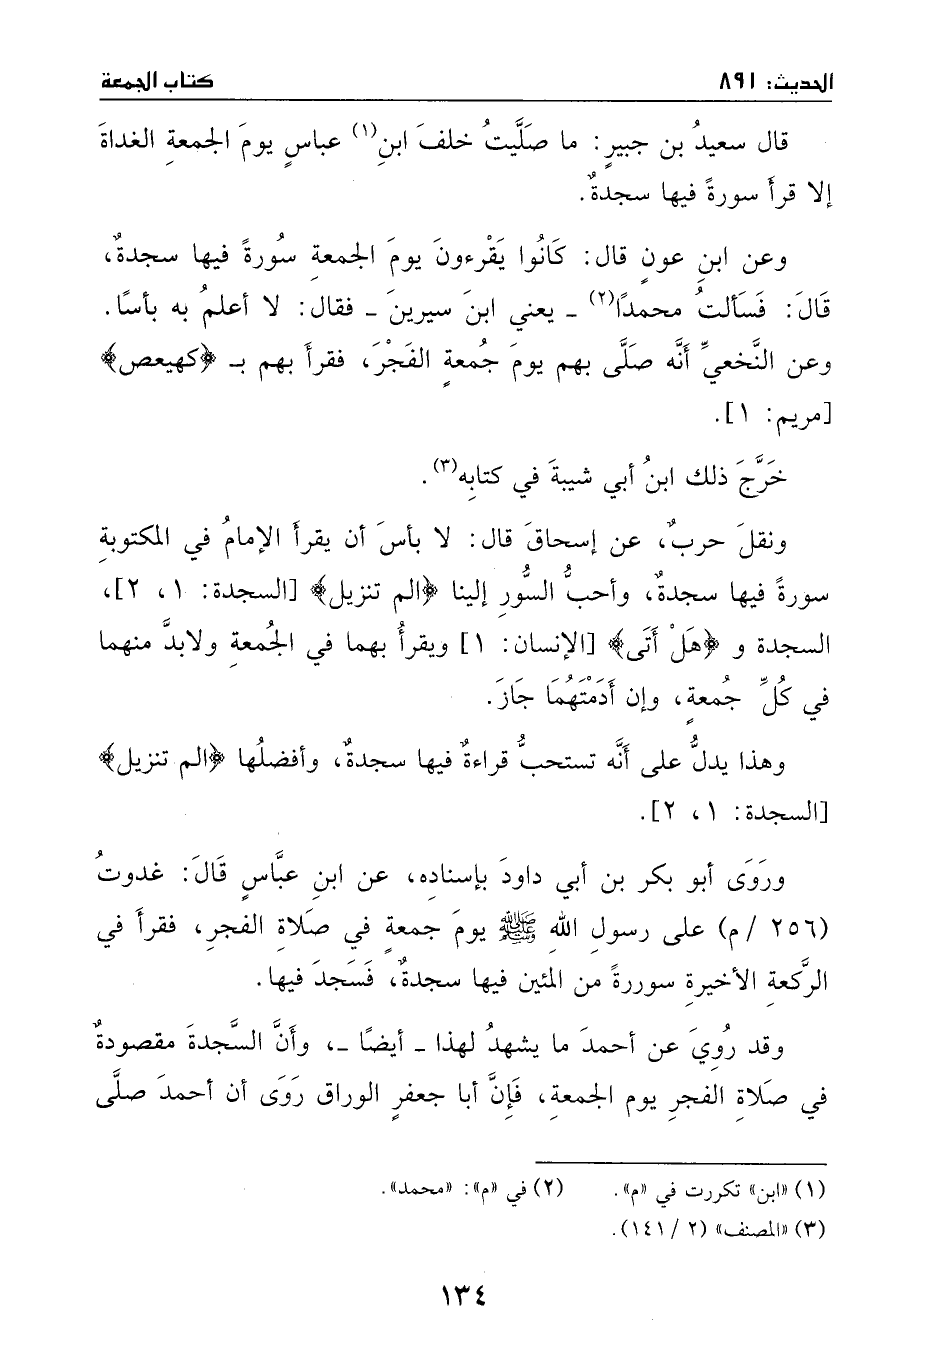 الحديث: ٨٩١ كتاب الجمعة
قال سعيدُ بن جبيرٍ: ما صَلَّيتُ خلفَ ابنِ(١) عباسٍ يومَ الجمعةِ الغداةَ
إلا قرأَ سورةً فيها سجدةٌ.
وعن ابنِ عونٍ قال: كَانُوا يَقْرءونَ يومَ الجمعةِ سُورةً فيها سجدةٌ،
قَالَ: فَسَألتُ محمدًا(٢) ـ يعني ابنَ سيرينَ ـ فقال: لا أعلمُ به بأسًا.
وعن النَّخعيِّ أنَّه صَلَّى بهم يومَ جُمعةٍ الفَجْرَ، فقرأَ بهم بـ ﴿كهيعص﴾
[مريم: ١].
خَرَّجَ ذلك ابنُ أبي شيبةَ في كتابِه(٣).
ونقلَ حربٌ، عن إسحاقَ قال: لا بأسَ أن يقرأَ الإمامُ في المكتوبةِ
سورةً فيها سجدةٌ، وأحبُّ السُّورِ إلينا ﴿الم تنزيل﴾ [السجدة: ١، ٢]،
السجدة و ﴿هَلْ أَتَى﴾ [الإنسان: ١] ويقرأُ بهما في الجُمعةِ ولابدَّ منهما
في كُلِّ جُمعةٍ، وإن أَدَمْتَهُمَا جَازَ.
وهذا يدلُّ على أنَّه تستحبُّ قراءةٌ فيها سجدةٌ، وأفضلُها ﴿الم تنزيل﴾
[السجدة: ١، ٢].
ورَوَى أبو بكر بن أبي داودَ بإسنادِه، عن ابنِ عبَّاسٍ قَالَ: غدوتُ
(٢٥٦ /م) على رسولِ اللهِ ﷺ يومَ جمعةٍ في صَلاةِ الفجرِ، فقرأَ في
الرَّكعةِ الأخيرةِ سوررةً من المئين فيها سجدةٌ، فَسَجدَ فيها.
وقد رُوِيَ عن أحمدَ ما يشهدُ لهذا ـ أيضًا ـ، وأنَّ السَّجدةَ مقصودةٌ
في صَلاةِ الفجرِ يومِ الجمعةِ، فَإِنَّ أبا جعفرٍ الوراق رَوَى أن أحمدَ صلَّى
(١) «ابن» تكررت في «م». (٢) في «م»: «محمد».
(٣) «المصنف» (٢ / ١٤١).
١٣٤